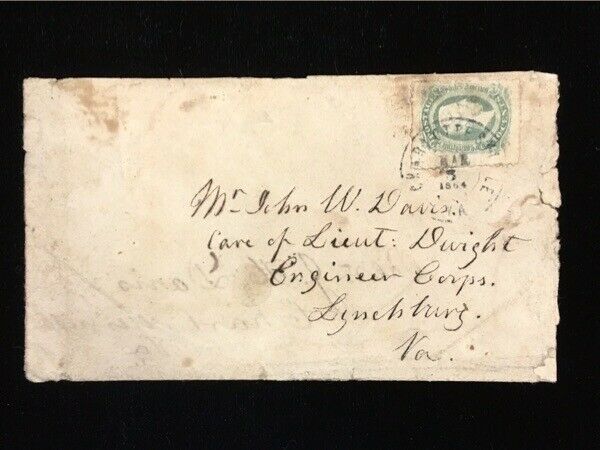 CHARLOTTESVILLE
MAR
3
1864
VA
Mr John W. Davis
Care of Lieut: Dwight
Engineer Corps.
Lynchburg.
Va.